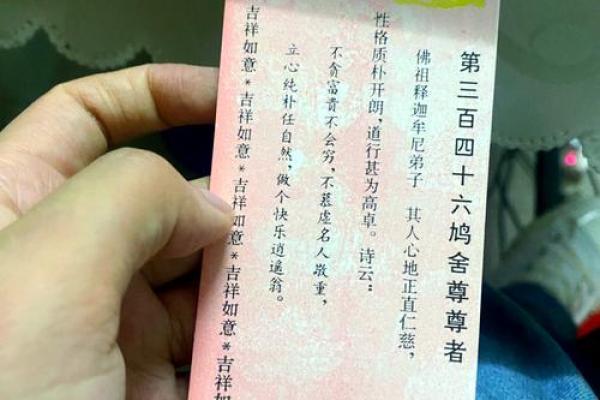 第三百四十六鸠舍尊尊者
佛祖释迦牟尼弟子 其人心地正直仁慈，
性格质朴开朗，道行甚为高卓。诗云：
不贪富贵不会穷，不慕虚名人敬重，
立心纯朴任自然，做个快乐逍遥翁。
吉祥如意*吉祥如意*吉祥如意*吉祥如意*吉祥如